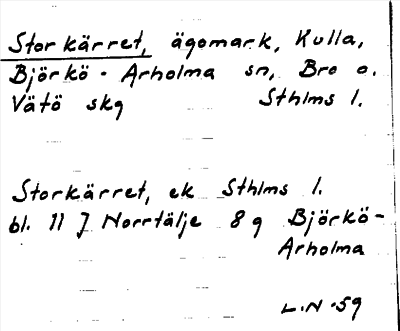 Storkärret, ägomark, Kulla,
Björkö-Arholma sn, Bro o.
Vätö skg Sthlms l.
Storkärret, ek Sthlms l.
bl. 11 J Norrtälje 8 g Björkö-
Arholma
L.N-59